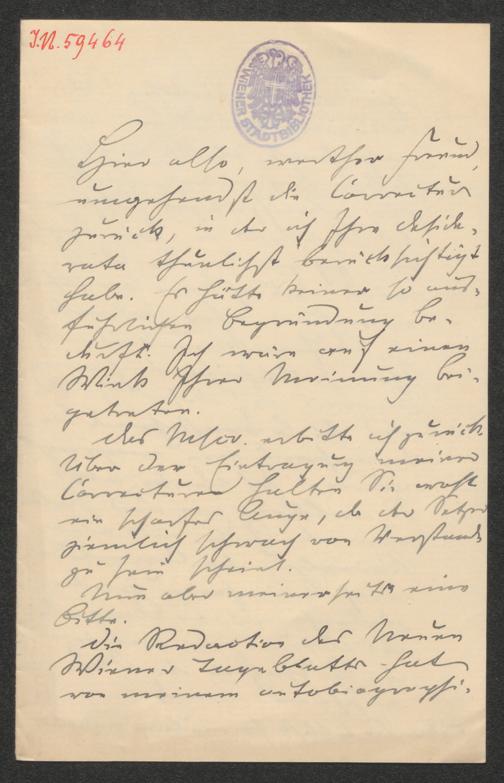 I.N. 59464
WIENER STADTBIBLIOTHEK
Hier also, werther Freund,
umgehendst die Correctur
zurück, in der ich Ihre deside-
rata thunlichst berücksichtigt
habe. Es hätte keiner so aus-
führlichen Begründung be-
durft. Ich wäre auf einen
Wink Ihrer Meinung bei-
getreten.
Das Mscr. erbitte ich zurück
Über der Eintragung meiner
Correcturen halten Sie wohl
ein scharfes Auge, da der Setzer
ziemlich schwach von Verstande
zu sein scheint.
Nun aber meinerseits eine
Bitte.
Die Redaction des Neuen
Wiener Tageblatts hat
von meinem autobiographi-